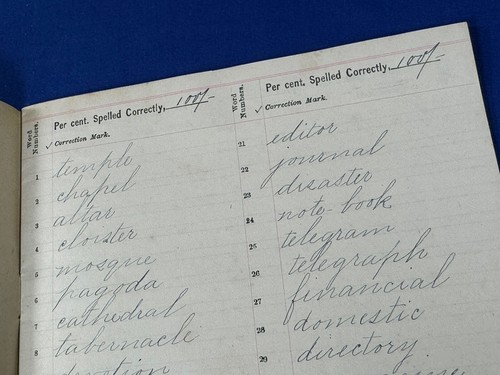 Per cent. Spelled Correctly, 100%
Word Numbers.
✓ Correction Mark.
1 temple
2 chapel
3 altar
4 cloister
5 mosque
6 pagoda
7 cathedral
8 tabernacle
devotion
Per cent. Spelled Correctly, 100%
Word Numbers.
✓ Correction Mark.
21 editor
22 journal
23 disaster
24 note-book
25 telegram
26 telegraph
27 financial
28 domestic
29 directory